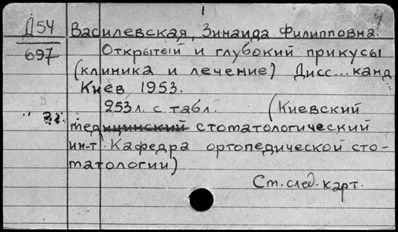 1
Д54 Василевская, Зинаида Филипповна.
697 Открытый и глубокий прикусы
(клиника и лечение) Дисс...канд
Киев, 1953.
253л. с табл. (Киевский
медицинский стоматологический
ин-т Кафедра ортопедической сто-
матологии)
См. след. карт.